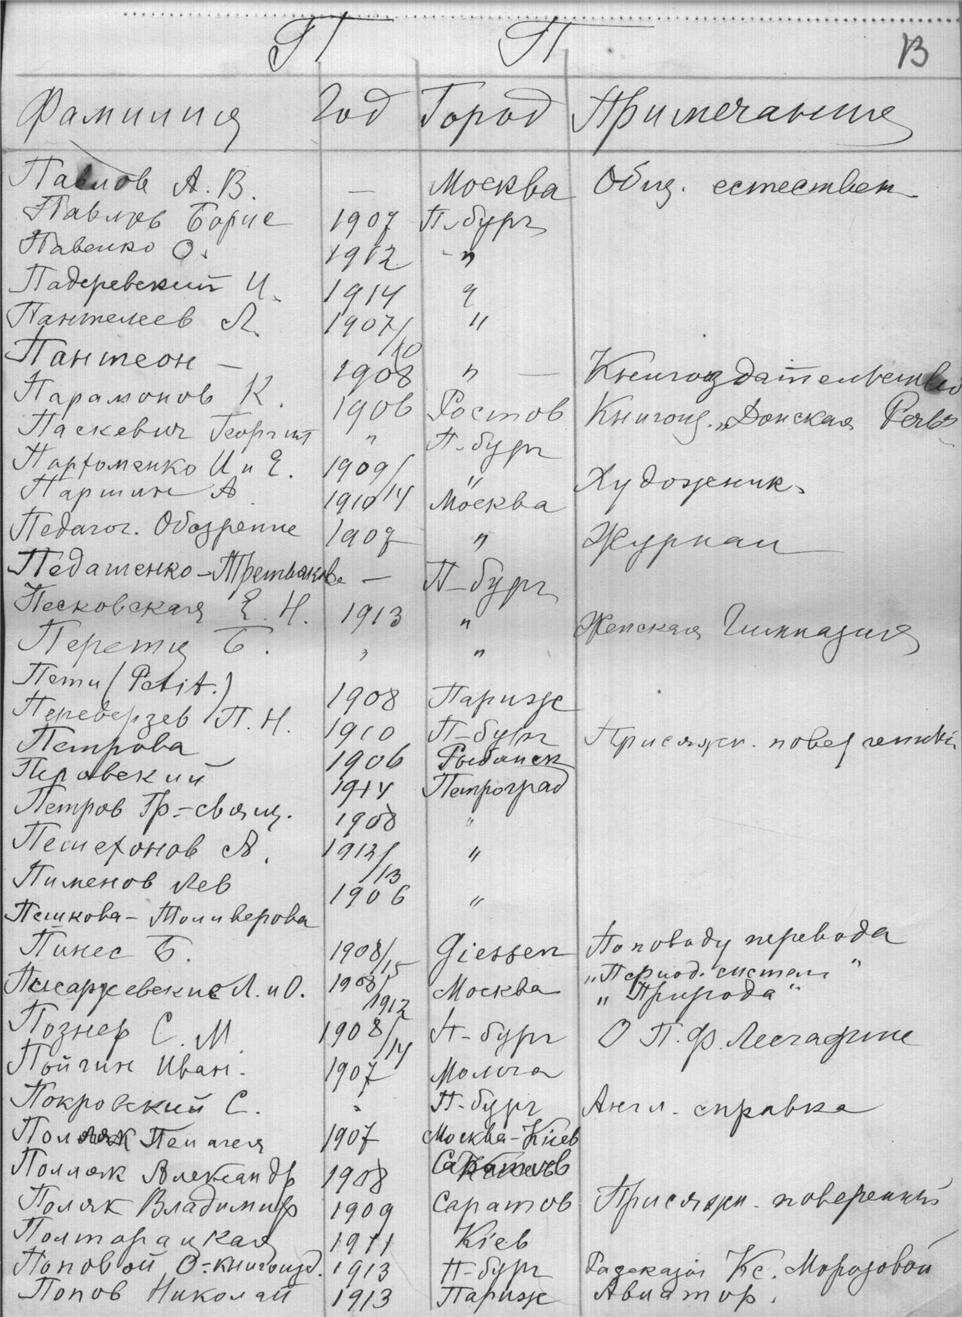 П П В
Фамилия Год Город Примечание
Павлов А. В. — Москва Общ. естествен
Павлов Борис 1907 П-бург
Павенко О. 1912 - "
Падеревский И. 1914 "
Пантелеев Л. 1907/10 "
Пантеон — 1908 " — Книгоиздательство
Парамонов К. 1906 Ростов Книгоизд. „Донская Речь"
Паскевич Георгий " П-бург
Пархоменко И и Е. 1909/14 " Художник.
Паршин А 1910 Москва
Педагог. Обозрение 1907 " Журнал
Педашенко-Третьякова — П-бург
Песковская Е. Н. 1913 " Женская Гимназия
Перетц Б. " "
Пети (Petit.) 1908 Париж
Переверзев П. Н. 1910 П-бург Присяжн. поверенный
Петрова 1906 Рыбинск
1914 Петроград
Петров Гр-свящ. 1908 "
Пешехонов А. 1912/13 "
Пименов Лев 1906 "
Пешкова-Толиверова
Пинес Б. 1908/15 Giessen По поводу перевода
„Период. систем"
Писаржевские Л. и О. 1908/1912 Москва „Природа"
Познер С. М. 1908/14 П-бург О П. Ф. Лесгафте
Пойгин Иван. 1907 Молога
Покровский С. " П-бург Англ. справка
Поляк Пелагея 1907 Москва-Кіев
Поляк Александр 1908 Саратов
Поляк Владимир 1909 Саратов Присяжн. поверенный
Полторацкая 1911 Кіев
Поповой О-книгоизд. 1913 П-бург Рассказы Кс. Морозовой
Попов Николай 1913 Париж Авиатор.